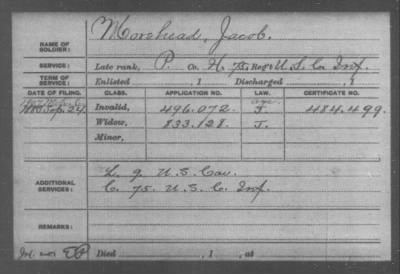 NAME OF SOLDIER: Morehead, Jacob.
SERVICE: Late rank, P. Co. H, 75 Reg't U.S. Co. Inf.
TERM OF SERVICE: Enlisted , 1 Discharged , 1
DATE OF FILING. CLASS. APPLICATION NO. LAW. CERTIFICATE NO.
Sep. 24 Invalid, 496.072. age J 484.499.
Widow, 833.128. J.
Minor,
ADDITIONAL SERVICES: L. 9. U.S. Cav.
C. 75. U.S. C. Inf.
REMARKS:
Died , 1 , at